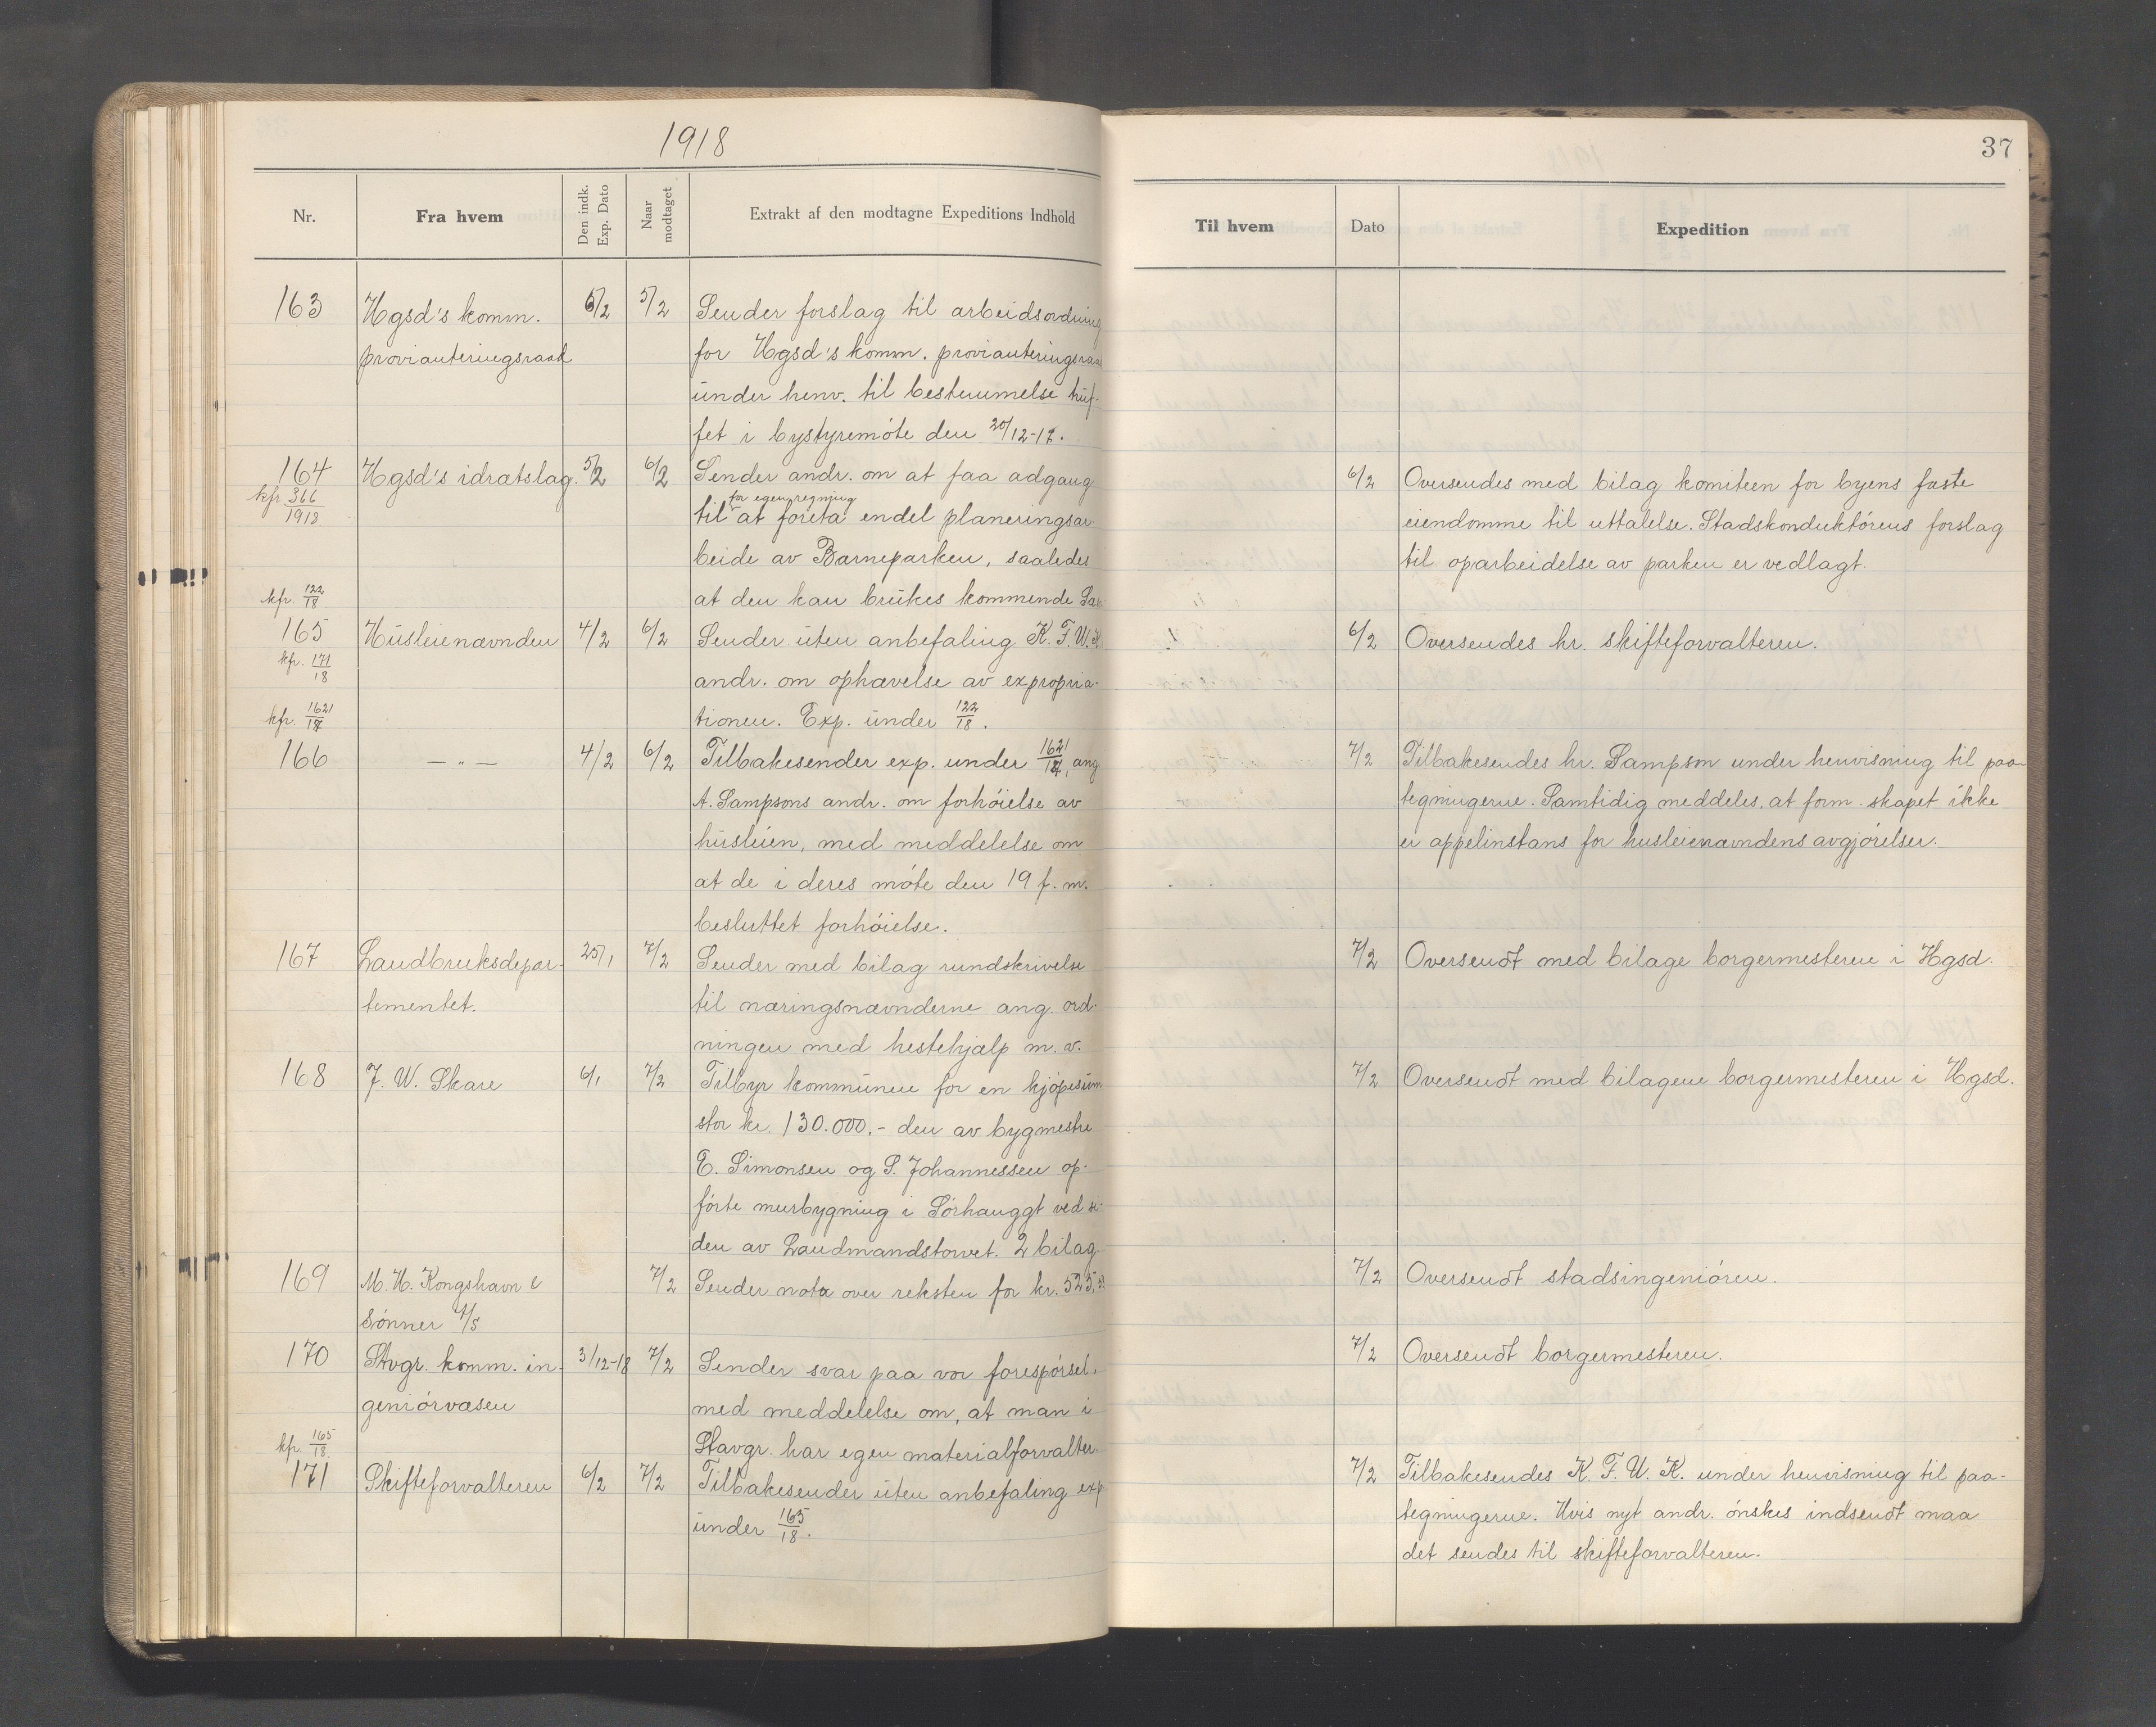 1918
Nr.
Fra hvem
Den indk. Exp. Dato
Naar modtaget
Extrakt af den modtagne Expeditions Indhold
163
Hgsd's komm.
proviauteringsraad
5/2
5/2
Sender forslag til arbeidsordning
for Hgsd's komm. provianteringsraa
under henv. til bestemmelse truf-
fet i bystyremöte den 20/12-17.
164
kfr. 366/1918
Hgsd's idrætslag.
5/2
6/2
Sender andr. om at faa adgang
for egen regning
til at foreta endel planeringsar-
beide av Barneparken, saaledes
at den kan brukes kommende
kfr. 122/18
165
kfr. 171/18
Husleienævnden
4/2
6/2
Sender uten anbefaling K. F. U. K
andr. om ophævelse av expropria-
tionen. Exp. under 122/18.
kfr. 1621/17
166
— " —
4/2
6/2
Tilbakesender exp. under 1621/17, ang
A. Sampsons andr. om forhöielse av
husleien, med meddelelse om
at de i deres möte den 19 f. m.
besluttet forhöielse.
167
Landbruksdepar-
tementet.
25/1
7/2
Sender med bilag rundskrivelse
til næringsnævnderne ang. ord-
ningen med hestehjælp m. v.
168
J. W. Skare
6/1
7/2
Tilbyr kommunen for en kjöpesum
stor kr. 130.000.- den av bygmestre
E. Simonsen og S. Johannessen op-
förte murbygning i Sörhauggt ved si-
den av Landmandstorvet. 2 bilag.
169
M. H. Kongshavn &
Sönner A/S
7/2
Sender nota over reksten for kr. 525,
170
Stvgr. komm. in-
geniörvæsen
3/12-18
7/2
Sender svar paa vor forespörsel,
med meddelelse om, at man i
Stavgr. har egen materialforvalter.
kfr. 165/18
171
Skifteforvalteren
6/2
7/2
Tilbakesender uten anbefaling exp
under 165/18.
37
Til hvem
Dato
Expedition
6/2
Oversendes med bilag komiteen for byens faste
eiendomme til uttalelse. Stadskonduktörens forslag
til oparbeidelse av parken er vedlagt.
6/2
Oversendes hr. skifteforvalteren.
7/2
Tilbakesendes hr. Sampson under henvisning til paa-
tegningerne. Samtidig meddeles, at form.skapet ikke
er appelinstans for husleienævndens avgjörelser.
7/2
Oversendt med bilage borgermesteren i Hgsd.
7/2
Oversendt med bilagene borgermesteren i Hgsd.
7/2
Oversendt stadsingeniören.
7/2
Oversendt borgermesteren.
7/2
Tilbakesendes K. F. U. K. under henvisning til paa-
tegningerne. Hvis nyt andr. önskes indsendt maa
det sendes til skifteforvalteren.